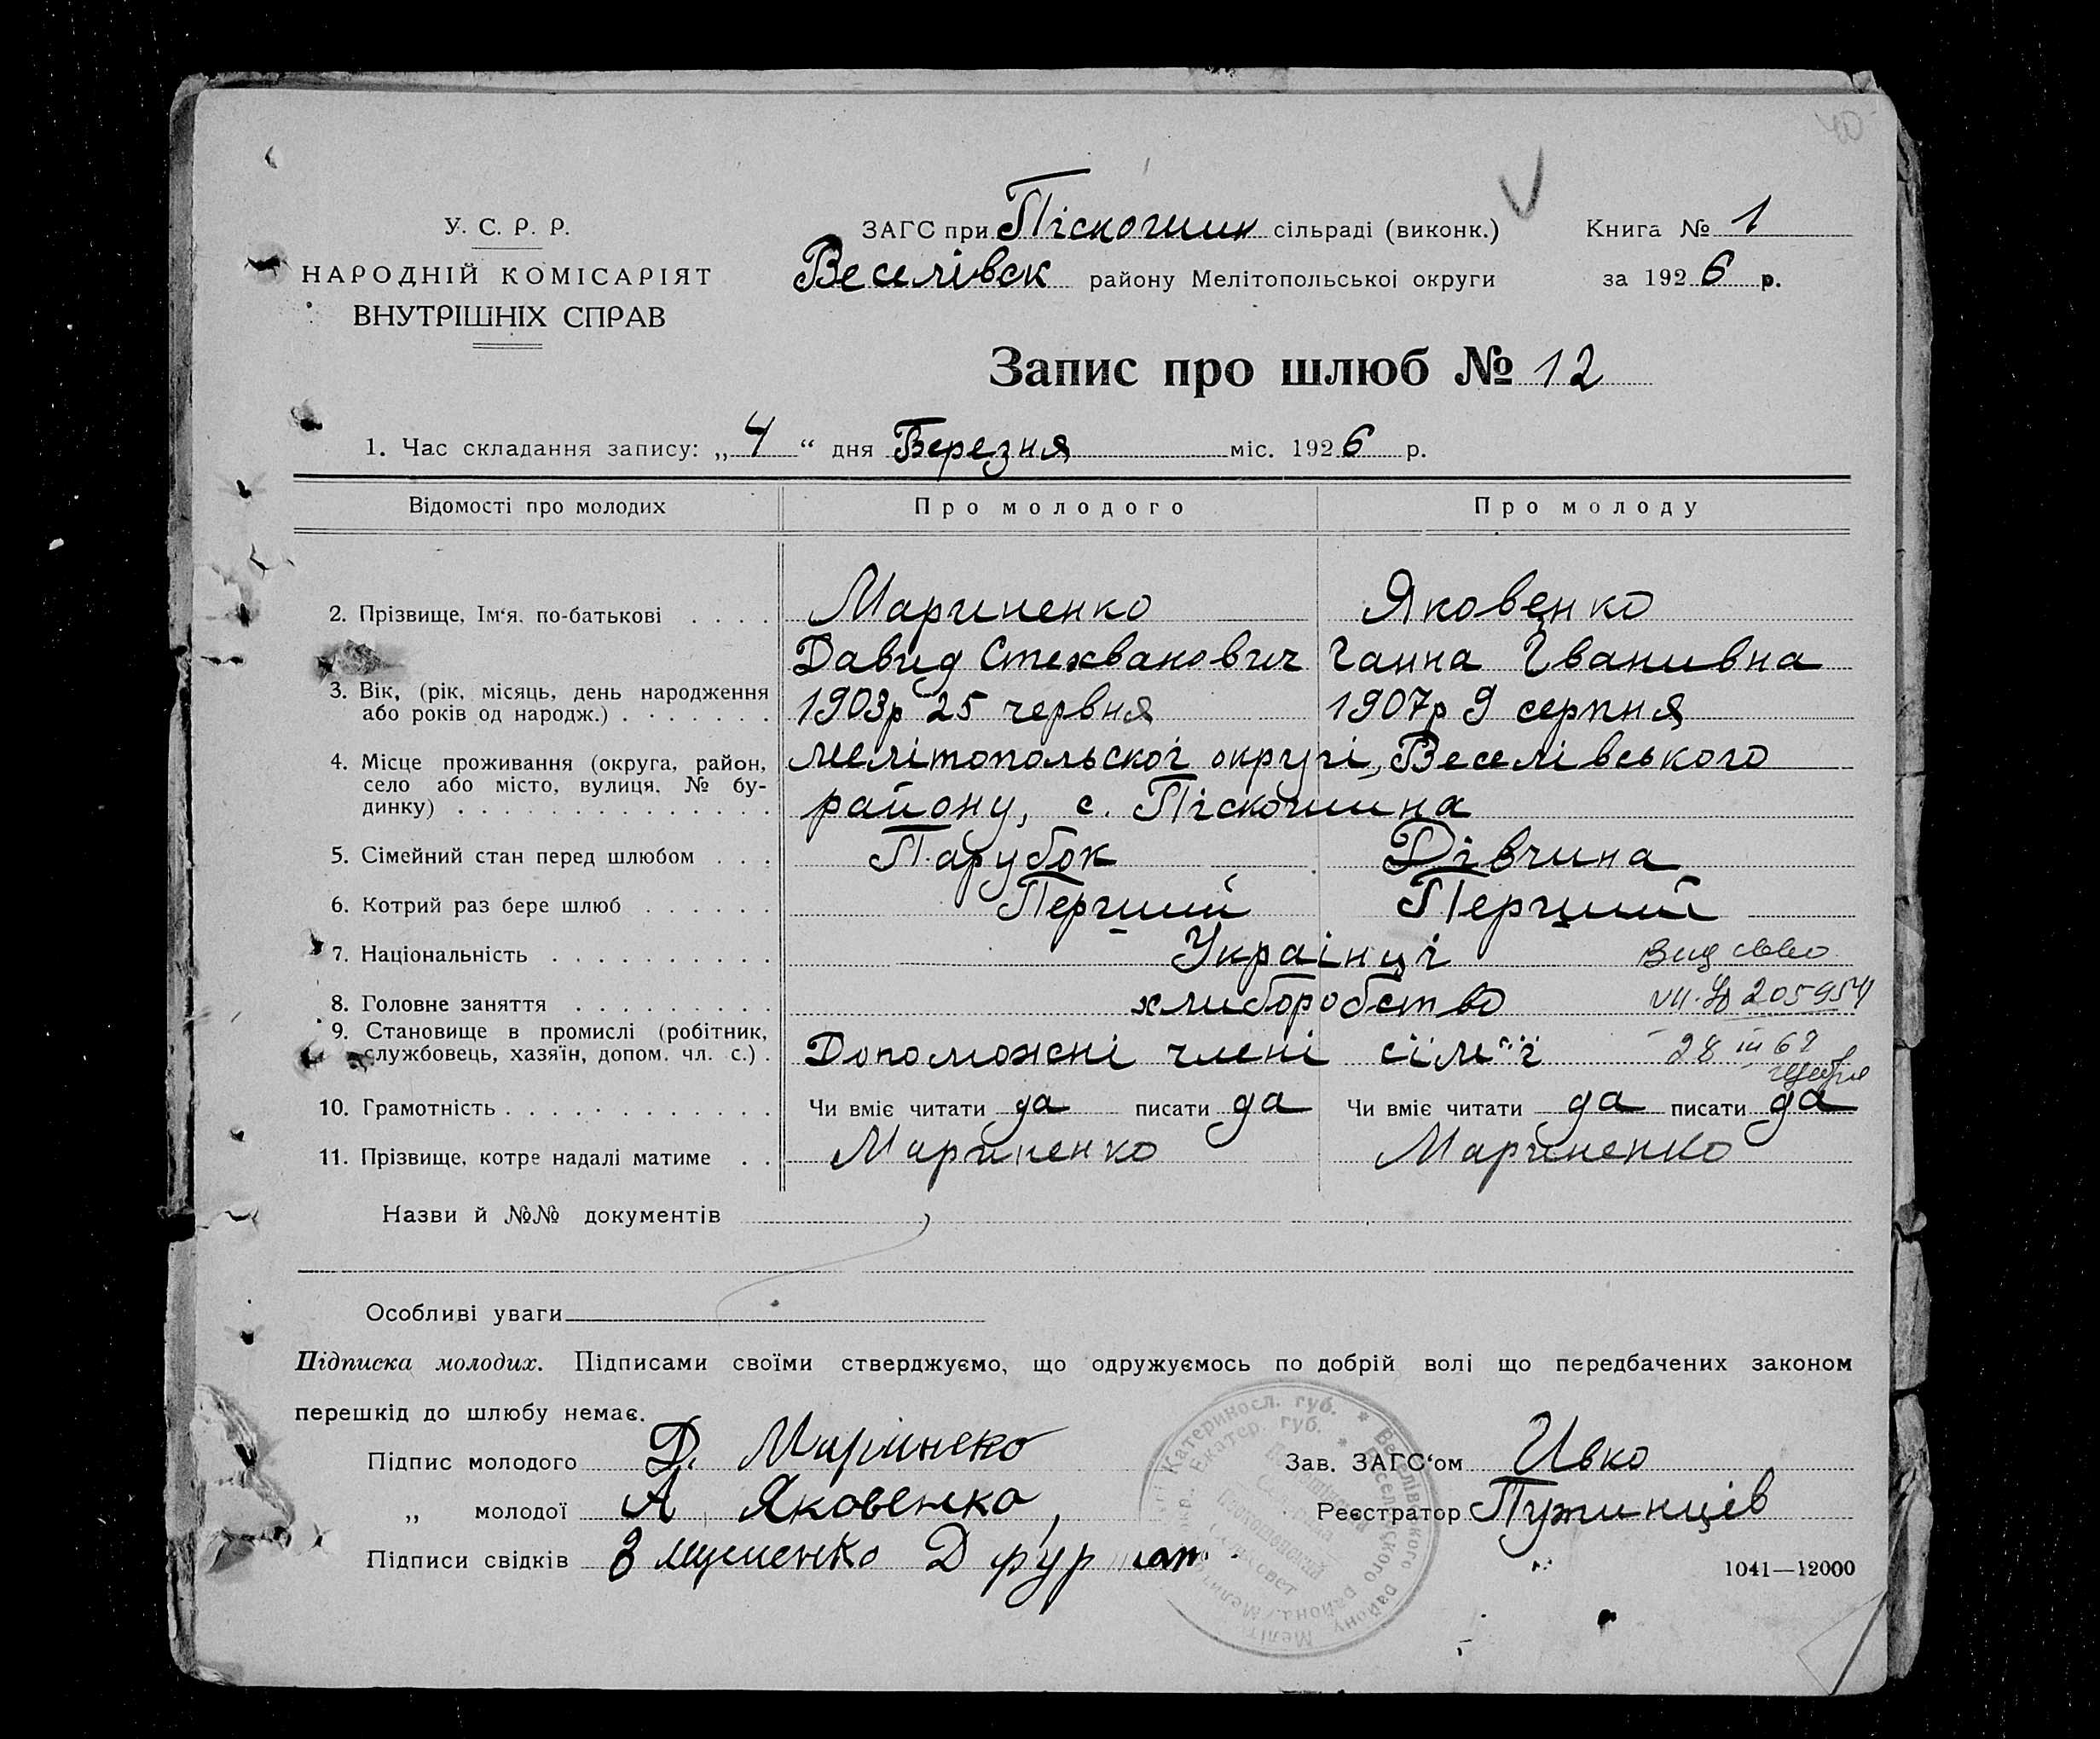 40
У. С. Р. Р.
НАРОДНІЙ КОМІСАРІЯТ
ВНУТРІШНІХ СПРАВ
ЗАГС при Піскошин сільраді (виконк.)
Веселівск району Мелітопольської округи
Книга № 1
за 1926 р.
Запис про шлюб № 12
1. Час складання запису: „ 4 “ дня Березня міс. 1926 р.
Відомості про молодих Про молодого Про молоду
2. Прізвище, Ім‘я, по-батькові . . . . Мариненко Яковенко
Давид Стехванович Ганна Іванивна
3. Вік, (рік, місяць, день народження
або років од народж.) . . . . . . . 1903р 25 червня 1907р 9 серпня
4. Місце проживання (округа, район,
село або місто, вулиця, № бу-
динку) . . . . . . . . . . . . . . .
мелітопольскої округі, Веселівського
району, с. Піскошина
5. Сімейний стан перед шлюбом . . . Парубок Дівчина
6. Котрий раз бере шлюб . . . . . . Перший Перший
7. Національність . . . . . . . . . . Українці
8. Головне заняття . . . . . . . . . хлиборобство
9. Становище в промислі (робітник,
службовець, хазяїн, допом. чл. с.) . Допоможні члені сімʼї
205954
28 III 67
10. Грамотність . . . . . . . . . . . . Чи вміє читати да писати да Чи вміє читати да писати да
11. Прізвище, котре надалі матиме . . Мариненко Мариненко
Назви й №№ документів
Особливі уваги
Підписка молодих. Підписами своїми стверджуємо, що одружуємось по добрій волі що передбачених законом
перешкід до шлюбу немає.
Підпис молодого Д. Марінеко
„ молодої А Яковенко
Підписи свідків
Зав. ЗАГС‘ом Ивко
Реєстратор Пужинців
1041—12000